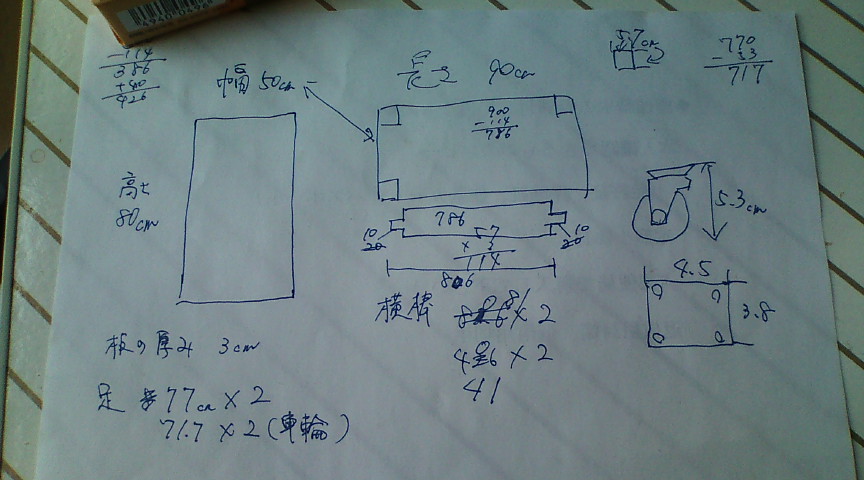 -114
386
+40
426
幅 50cm
長さ 90cm
5.7cm
770
-53
717
900
-114
786
高さ
80cm
5.3cm
786
10
20
10
20
57
114
806
4.5
3.8
横棒
81 × 2
4 6 × 2
41
板の厚み 3cm
足 77cm × 2
71.7 × 2 (車輪)